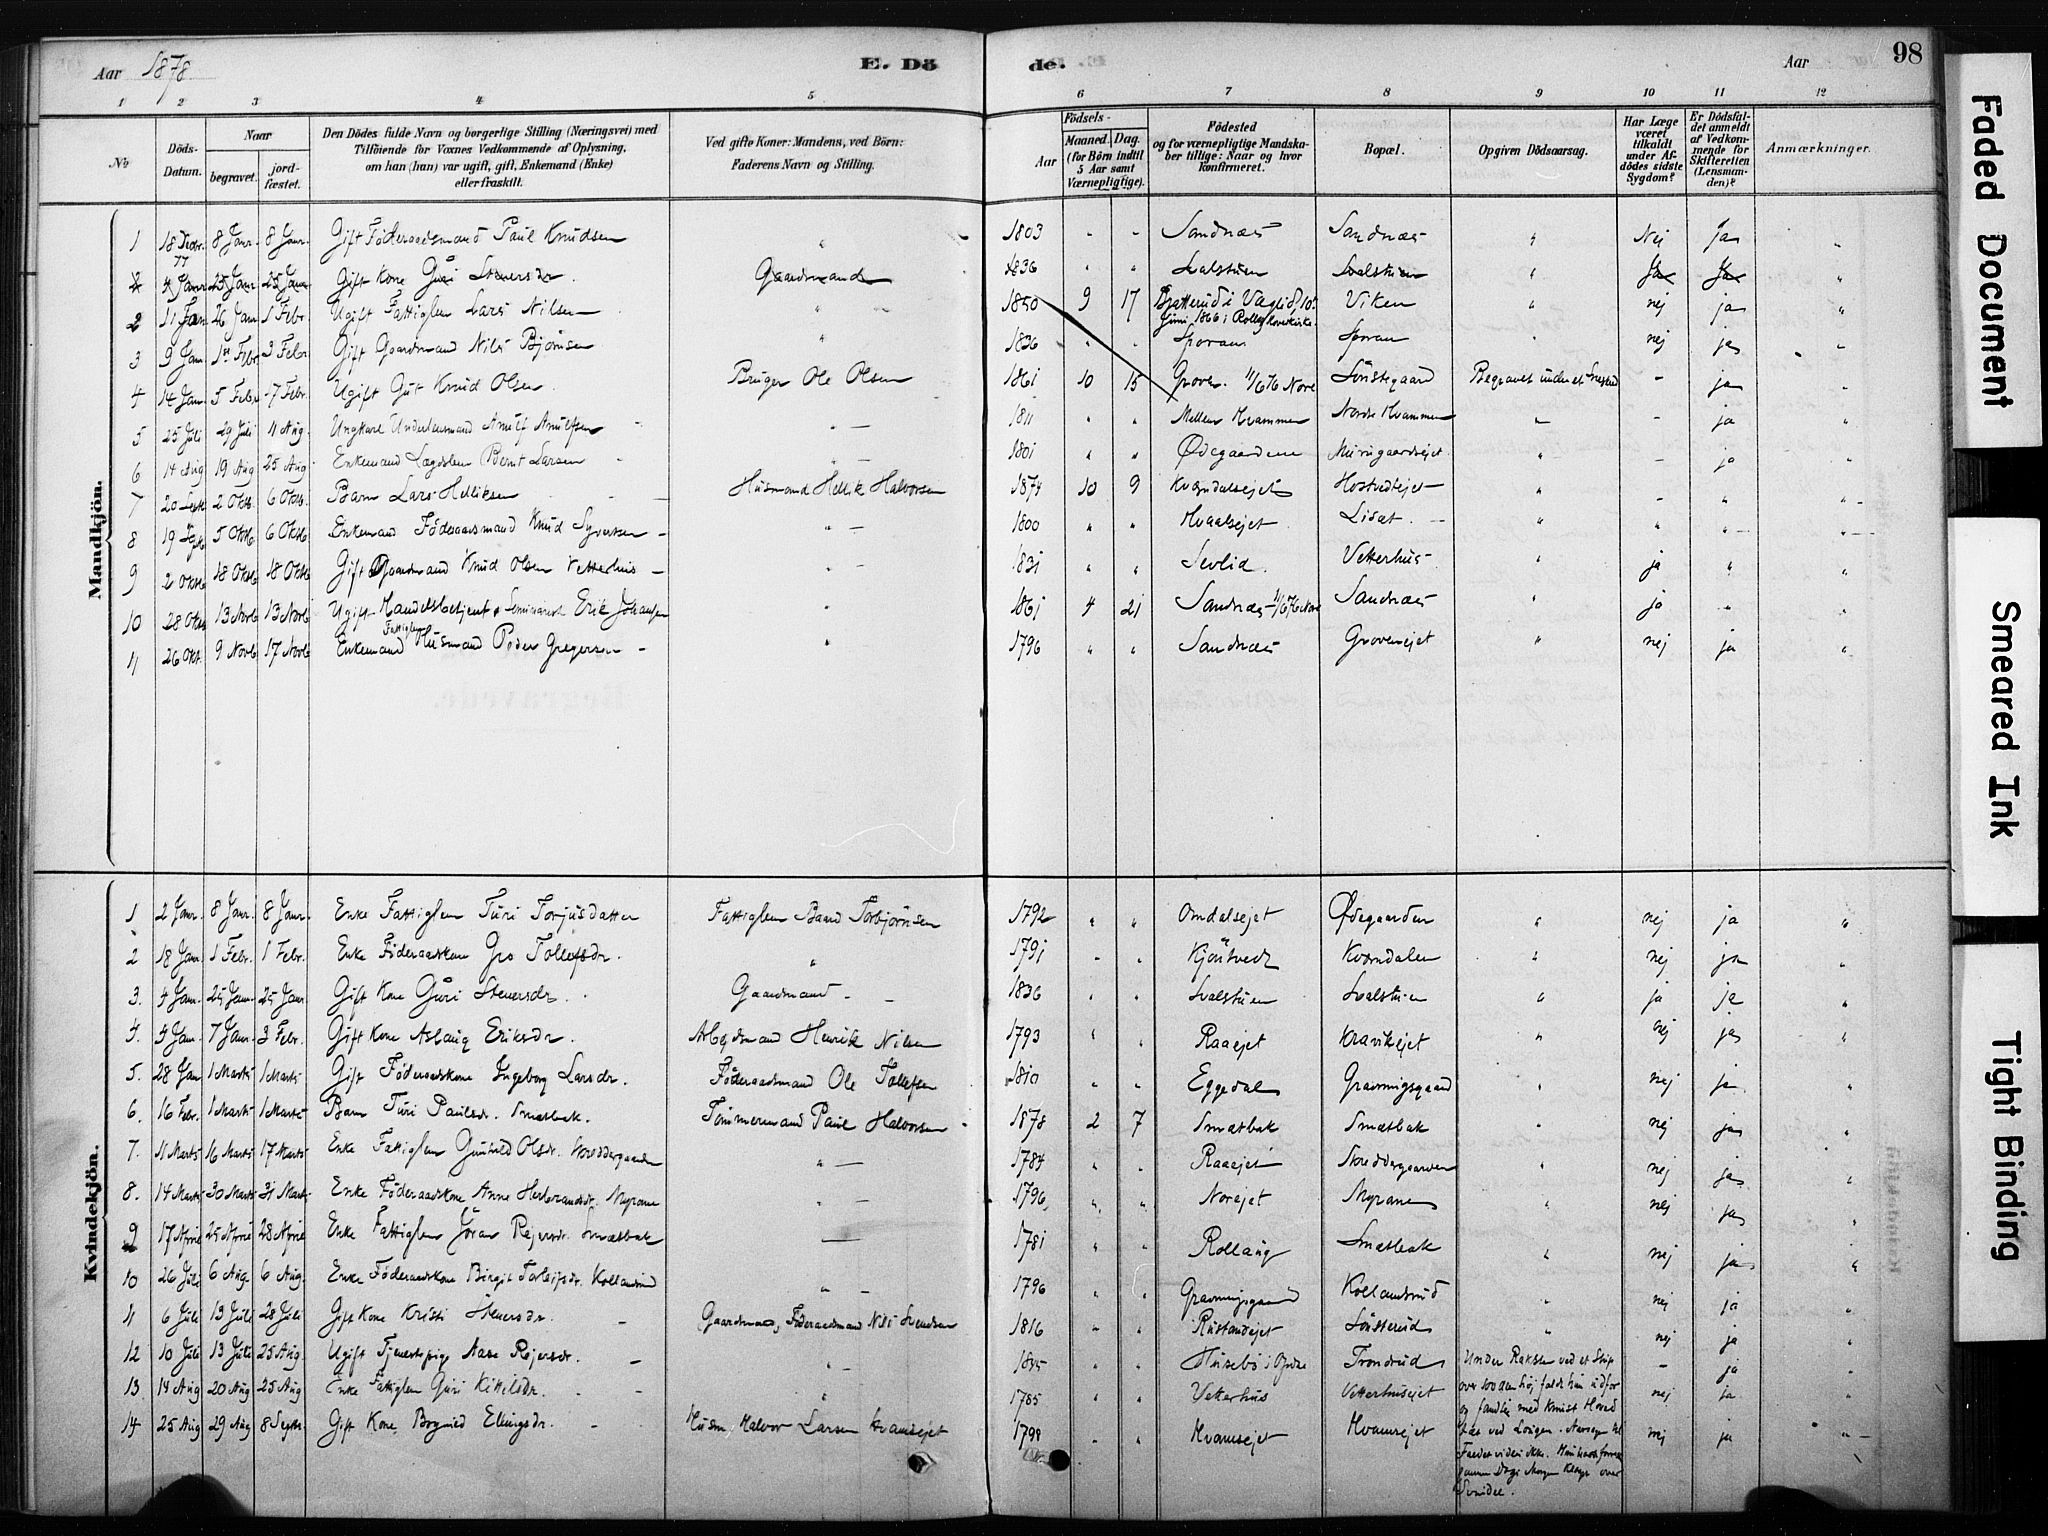 Aar 1878. E. Dö
de. Aar 98
1 2 3 4 5 6 7 8 9 10 11 12
No
Döds-Datum.
Naar
begravet. jordfæstet.
Den Dödes fulde Navn og borgerlige Stilling (Næringsvei) med Tilföiende for Voxnes Vedkommende af Oplysning, om han (hun) var ugift, gift, Enkemand (Enke) eller fraskilt.
Ved gifte Koner: Mandens, ved Börn: Faderens Navn og Stilling.
Födsels-
Aar Maaned. Dag.
(for Börn indtil 5 Aar samt Værnepligtige).
Födested og for værnepligtige Mandskaber tillige: Naar og hvor Konfirmeret.
Bopæl.
Opgiven Dödsaarsag.
Har Læge været tilkaldt under Afdödes sidste Sygdom?
Er Dödsfaldet anmeldt af Vedkommende for Skifteretten (Lensmanden)?
Anmærkninger.
Mandkjön.
1 18 Decbr. 77 8 Janr. 8 Janr. Gift Föderaadsmand Paul Knudsen " 1803 - - Sandnæs Sandnæs " Nej Ja "
2 4 Janr 25 Janr 25 Janr Gift Kone Guri Steversdr. Gaardmand 1836 " " Svalstuen Svalstuen " Ja Ja "
2 11 Jan 26 Jan 1 Febr. Ugift Fattiglem Lars Nilsen " 1850 9 17 Bratterud i Væglid, 10. Juni 1866 i Rollag Hovedkirke. Viken " nej ja "
3 9 Jan. 1st Febr 3 Febr Gift Gaardmand Nils Bjönsen " 1836 " " Sporan Sporan " nej ja "
4 14 Jan. 5 Febr 7 Febr. Ugift Gut Knud Olsen Bruger Ole Olsen 1861 10 15 Grover. 11/6 76 Nore Sönstegaard Begravet under et Sneskred - ja
5 25 Juli 29 Juli 4 Aug. Ungkarl Underlensmand Arnulf Arnulfsen " — 1811 " " Mellem Hvammen Nordre Hvammen - ja "
6 14 Aug 19 Aug 25 Aug. Enkemand Lægdslem Bernt Larsen " — 1801 " " Ødegaardene " - ja "
7 20 Sept 2 Oktb 6 Oktb. Barn Lars Helliksen Husmand Hellik Halvorsen 1874 10 9 Kvændalsejet Hostvedtejet " - " "
8 19 Sept 5 Oktb 6 Oktb Enkemand Föderaadsmand Knud Syvertsen " — 1800 " " Hvaalsejet Lisæt. " " " "
9 2 Oktb 18 Oktb 18 Oktb Gift Gaardmand Knud Olsen Vetterhus " 1831 " " Sevlid. Vetterhus " ja " "
10 28 Oktb 13 Novb 13 Novb Ugift Handelsbetjent & Seminarist Erik Johansen " 1861 4 21 Sandnæs 11/6 76 Nore Sandnæs " ja " "
11 26 Okt. 9 Novb 17 Novb Enkemand Fattiglem Husmand Peder Gregersen " 1796 " " Sandnæs Groverejet " nej ja "
Kvindekjön.
1 2 Janr. 8 Janr. 8 Janr. Enke Fattiglem Turi Torjusdatter Fattiglem Baard Torbjörnsen 1792 " " Omdalsejet Ødegaarden " nej ja "
2 18 Jan. 1 Febr. 1 Febr. Enke Föderaadskone Gro Tollefsdr. " 1791 " " Kjöntvedt Kværndalen " nej ja "
3. 4 Jan. 25 Jan. 25 Janr Gift Kone Guri Steversdr. Gaardmand 1836 " " Svalstuen Svalstuen " ja ja "
4. 4 Jan. 7 Janr. 3 Febr. Gift Kone Aslaug Eriksdr. Arbejdsmand Henrik Nilsen 1793 " " Raaejet Kravikejet " nej ja "
5. 28 Jan 1 Marts 1 Marts Gift Föderaadskone Ingeborg Larsdr. Föderaadsmand Ole Tollefsen 1810 " " Eggedal Gravningsgaard " nej ja "
6. 16 Febr. 1 Marts 1 Marts Barn Turi Paulsdr. Smætbak. Tömmermand Paul Halvorsen 1878 2 7 Smætbak Smætbak " nej ja "
7. 11 Marts 16 Marts 17 Marts Enke Fattiglem Gunhild Olsdr. Skreddergaarden " — 1784 " " Raaejet Skreddergaarden " nej ja "
8. 14 Marts 30 Marts 31 Marts Enke Föderaadskone Anne Herbrandsdr. Myrane " — 1796 " " Norejet Myrane " nej ja "
9 17 April 25 April 28 April Enke Fattiglem Jöran Rejersdr. Smætbak — 1781 " " Rollaug Smætbak " nej ja "
10 26 Juli 6 Aug. 6 Aug. Enke Föderaadskone Birgit Torleifsdr. Kollandsrud " — 1796 " " Gravningsgaard Kollandsrud " nej ja "
11 6 Juli 13 Juli 28 Juli Gift Kone Kristi Steversdr. Gaardmand, Föderaadsmand Nils Svendsen 1816 " " Rustandejet Sönsterud " nej ja "
12 10 Juli 13 Juli 25 Aug. Ugift Tjenestepige Aase Rejersdr. " — 1835 " " Husebö i Opdal Trondrud Under Raksten ved et Stup over 100 Alen höj faldt hun udfor og fandtes med knust Hoved - ja "
13. 14 Aug 20 Aug 25 Aug Enke Fattiglem Guri Kittilsdr. " 1785 " " Vetterhus Vetterhusejet nej ja "
14 25 Aug 29 Aug 8 Septr. Gift Kone Bogned Ellingsdr. Husm. Halvor Larsen Kvamsejet 1798 " " Hvamsejet Hvamsejet nej ja "
Faded Document
Smeared Ink
Tight Binding